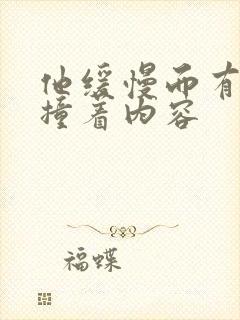 他缓慢而有
撞着内容
福蝶